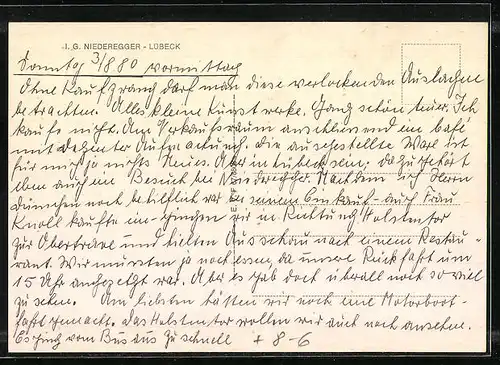 J. G. NIEDEREGGER - LÜBECK
Sonntag 3/8 80 vormittag
Ohne Kaufzwang darf man diese verlockenden Auslagen
betrachten. Alles kleine Kunstwerke. Ganz schön teuer. Ich
kaufe nicht. Am Verkaufsraum anschliessend ein Café
mit dezenter Aufmachung. Die ausgestellte Ware ist
für mich ja nichts Neues. Aber in Lübeck sein, dazu gehört
eben auch ein Besuch bei Niederegger. Nachdem ich Herrn
noch behilflich war bei seinem Einkauf - auch Frau
Knoll kaufte ein - gingen wir in Richtung Holstentor
zur Obertrave und hielten Ausschau nach einem Restau-
rant. Wir mussten ja noch essen, da unsere Rückfahrt um
15 Uhr angesetzt war. Aber es gab doch überall noch so viel
zu sehen. Am liebsten hätten wir noch eine Motorboot-
fahrt gemacht. Das Holstentor wollen wir auch noch ansehen.
Es ging vom Bus aus zu schnell + 8 - 6